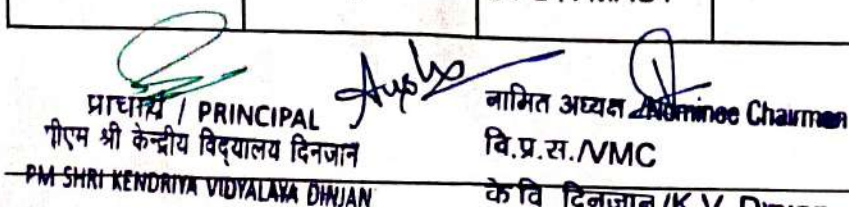 प्राचार्य / PRINCIPAL
पीएम श्री केन्द्रीय विद्यालय दिनजान
PM SHRI KENDRIYA VIDYALAYA DINJAN
नामित अध्यक्ष / Nominee Chairman
वि.प्र.स./VMC
के वि दिनजान/K.V.